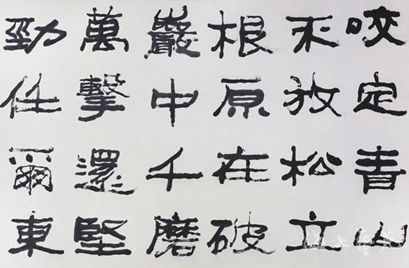 咬定青山
不放松立
根原在破
巖中千磨
萬擊還堅
勁任爾東